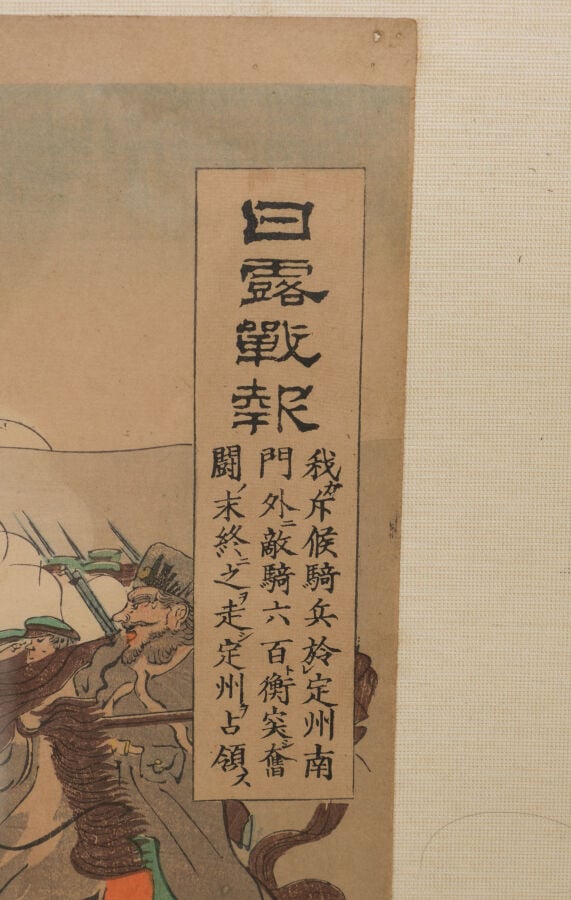 日露戰報
我ガ斥候騎兵於レ定州南
門外ニ敵騎六百ト衡突シ奮
闘ノ末終ニ之ヲ走シ定州ヲ占領ス